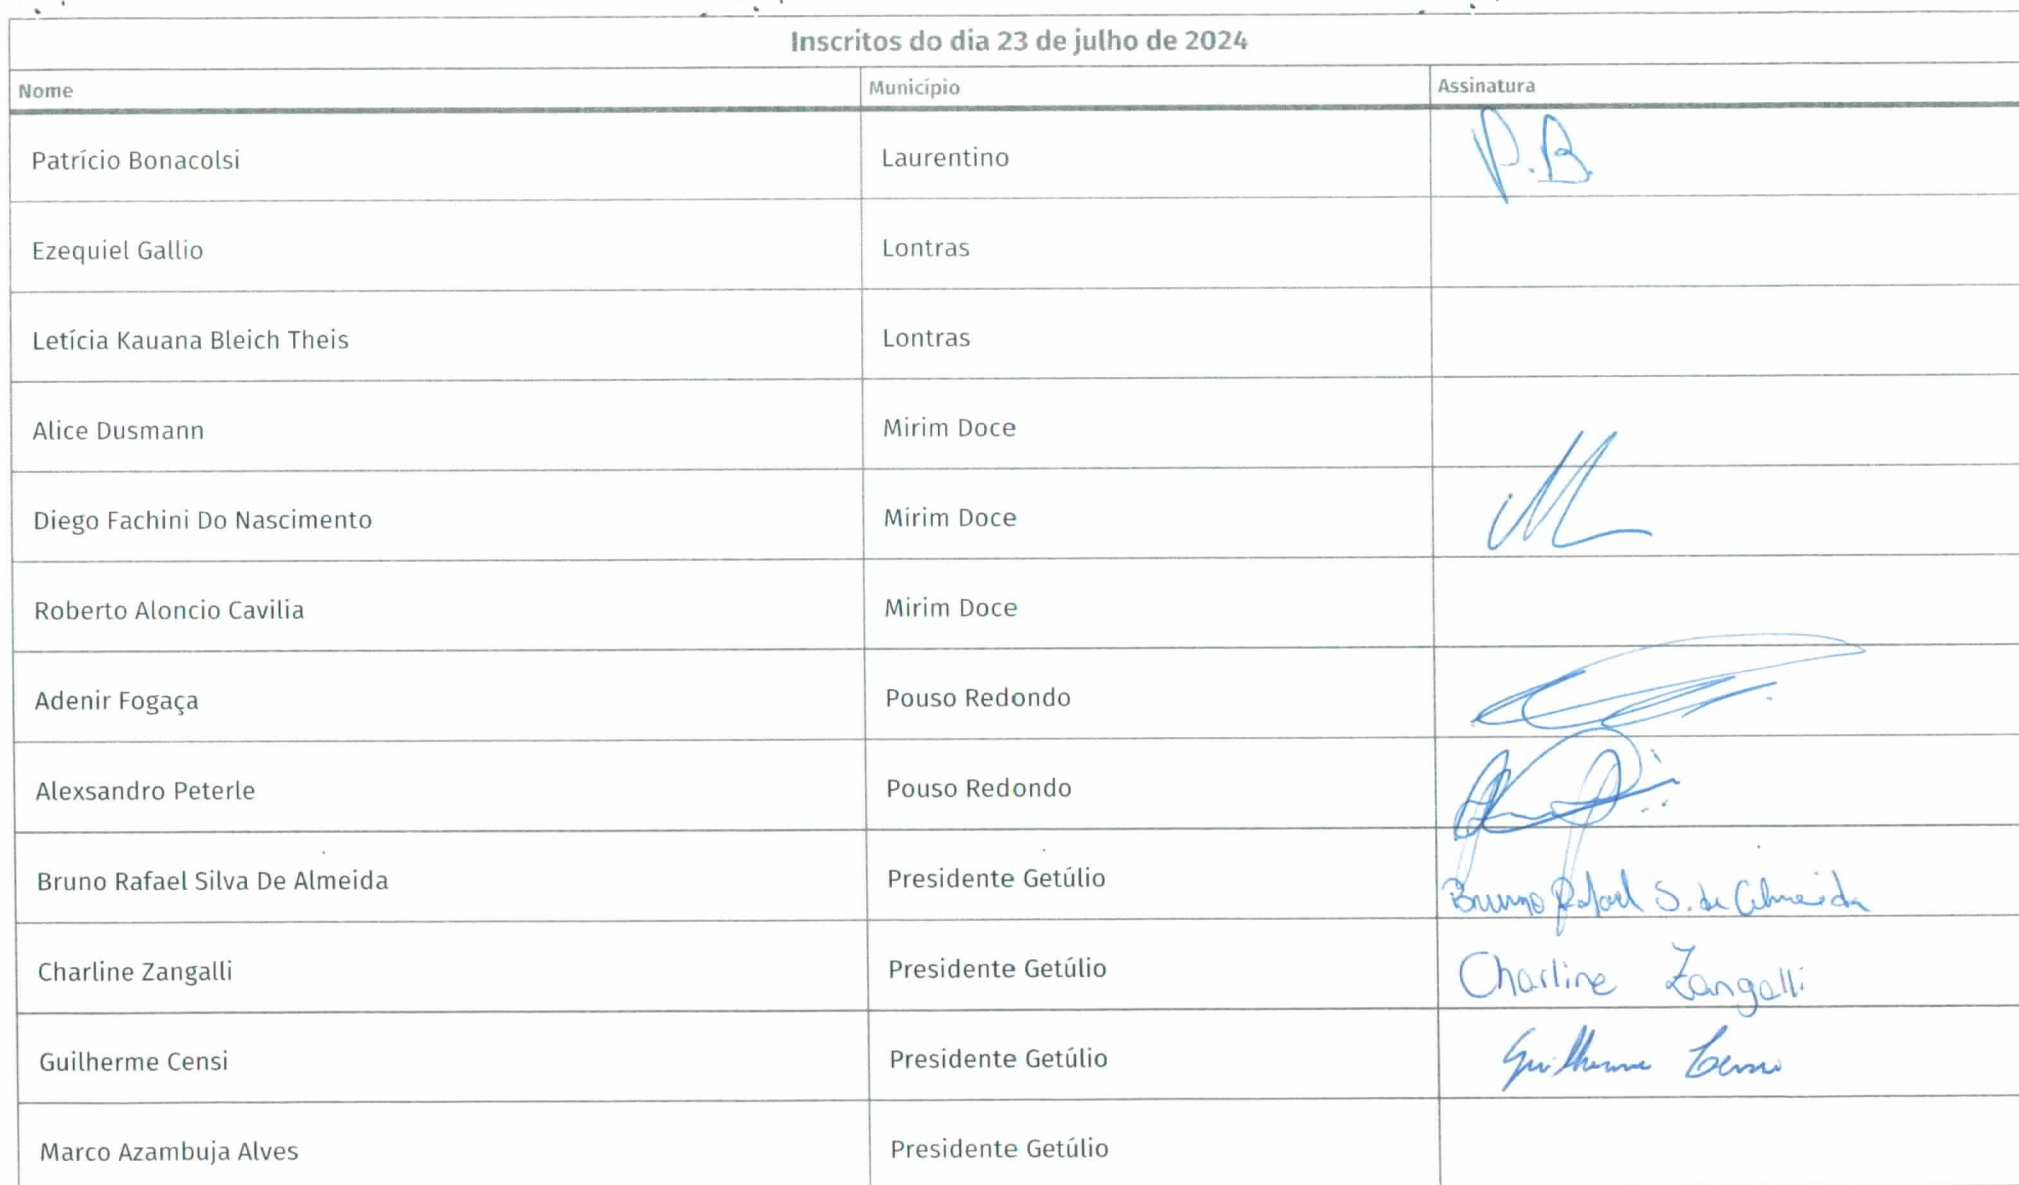 Inscritos do dia 23 de julho de 2024
Nome Município Assinatura
Patrício Bonacolsi Laurentino P.B.
Ezequiel Gallio Lontras
Letícia Kauana Bleich Theis Lontras
Alice Dusmann Mirim Doce
Diego Fachini Do Nascimento Mirim Doce
Roberto Aloncio Cavilia Mirim Doce
Adenir Fogaça Pouso Redondo
Alexsandro Peterle Pouso Redondo
Bruno Rafael Silva De Almeida Presidente Getúlio Bruno Rafael S. de Almeida
Charline Zangalli Presidente Getúlio Charline Zangalli
Guilherme Censi Presidente Getúlio Guilherme Censi
Marco Azambuja Alves Presidente Getúlio